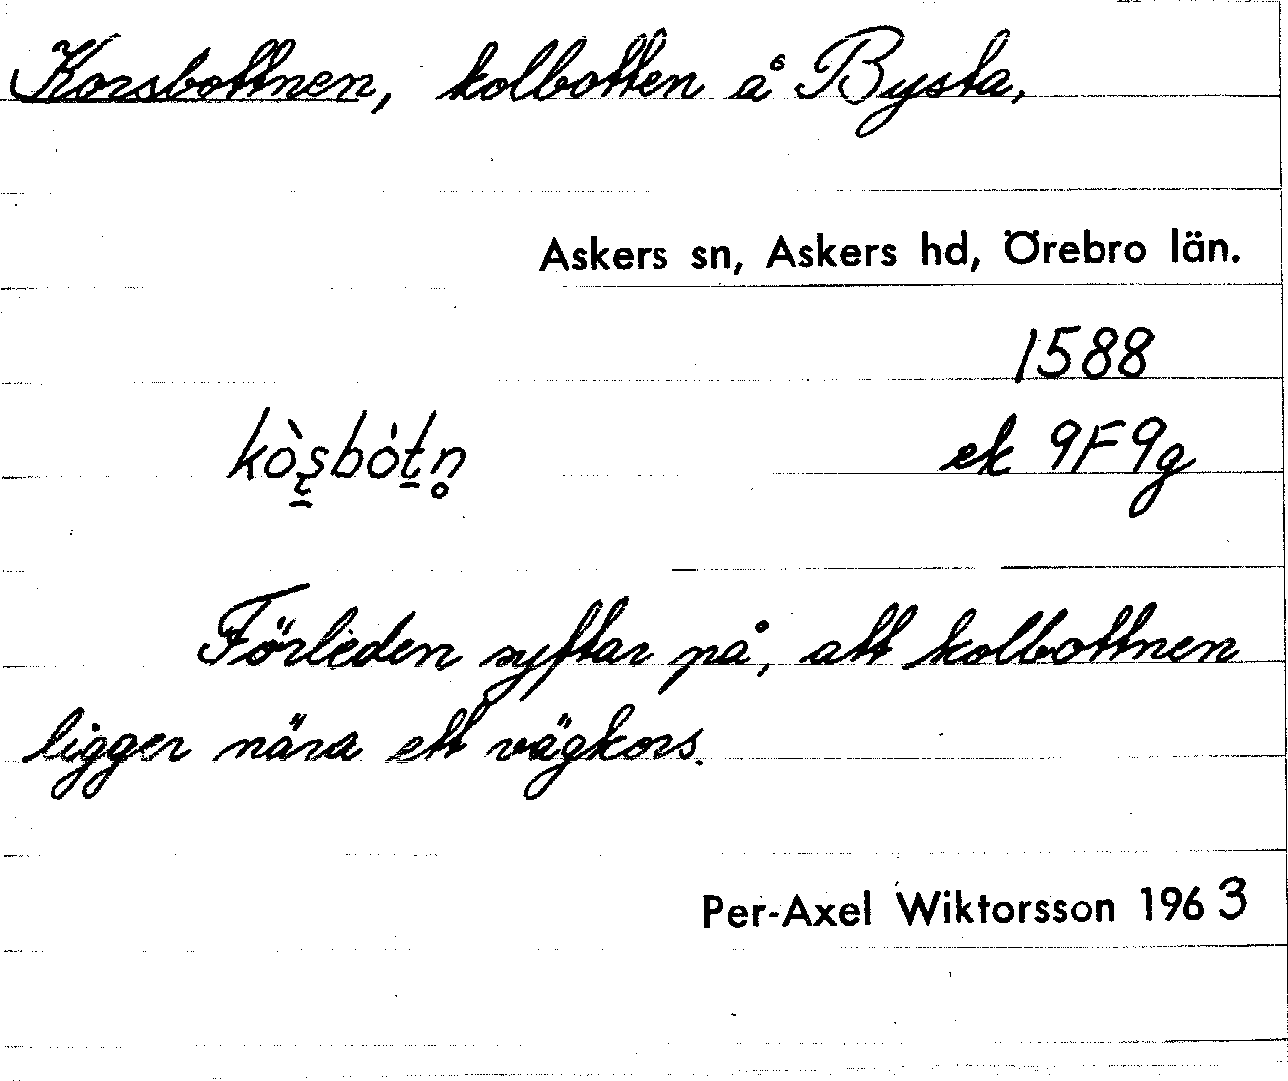 Korsbottnen, kolbotten å Bysta,
Askers sn, Askers hd, Örebro län.
1588
kòʂbót̲n̥ ek 9F9g
Förleden syftar på, att kolbottnen
ligger nära ett vägkors.
Per-Axel Wiktorsson 1963